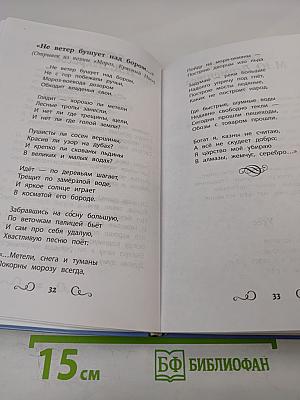 «Не ветер бушует над бором...»
(Отрывок из поэмы «Мороз, Красный нос»)
Не ветер бушует над бором,
Не с гор побежали ручьи,
Мороз-воевода дозором
Обходит владенья свои.
Глядит — хорошо ли метели
Лесные тропы занесли,
И нет ли где трещины, щели,
И нет ли где голой земли?
Пушисты ли сосен вершины,
Красив ли узор на дубах?
И крепко ли скованы льдины
В великих и малых водах?
Идёт — по деревьям шагает,
Трещит по замёрзлой воде,
И яркое солнце играет
В косматой его бороде.
Забравшись на сосну большую,
По веточкам палицей бьёт
И сам про себя удалую,
Хвастливую песню поёт:
«...Метели, снега и туманы
Покорны морозу всегда,
32
Пойду на моря-окияны —
Построю дворцы изо льда.
Задумаю — реки большие
Надолго упрячу под гнёт,
Построю мосты ледяные,
Каких не построит народ.
Где быстрые, шумные воды
Недавно свободно текли —
Сегодня прошли пешеходы,
Обозы с товаром прошли.
Богат я, казны не считаю,
А всё не скудеет добро;
Я царство моё убираю
В алмазы, жемчуг, серебро...»
33
15 см
БФ БИБЛИОФАН